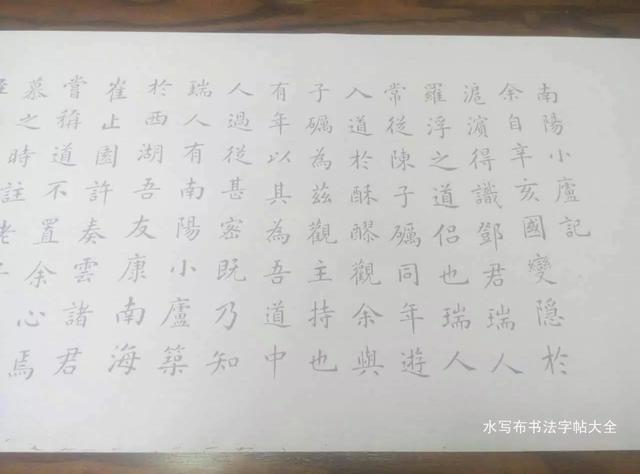 南陽小廬記
余自辛亥國變隱於
滬濱得識鄧君瑞人
羅浮之道侶也瑞人
常從陳子礪同年遊
入道於酥醪觀余與
子礪為茲觀主持也
有年以其為吾道中
人過從甚密既乃知
瑞人有南陽小廬築
於西湖吾友康南海
崔止園許奏雲諸君
嘗稱道不置余心焉
慕之時註
水写布书法字帖大全